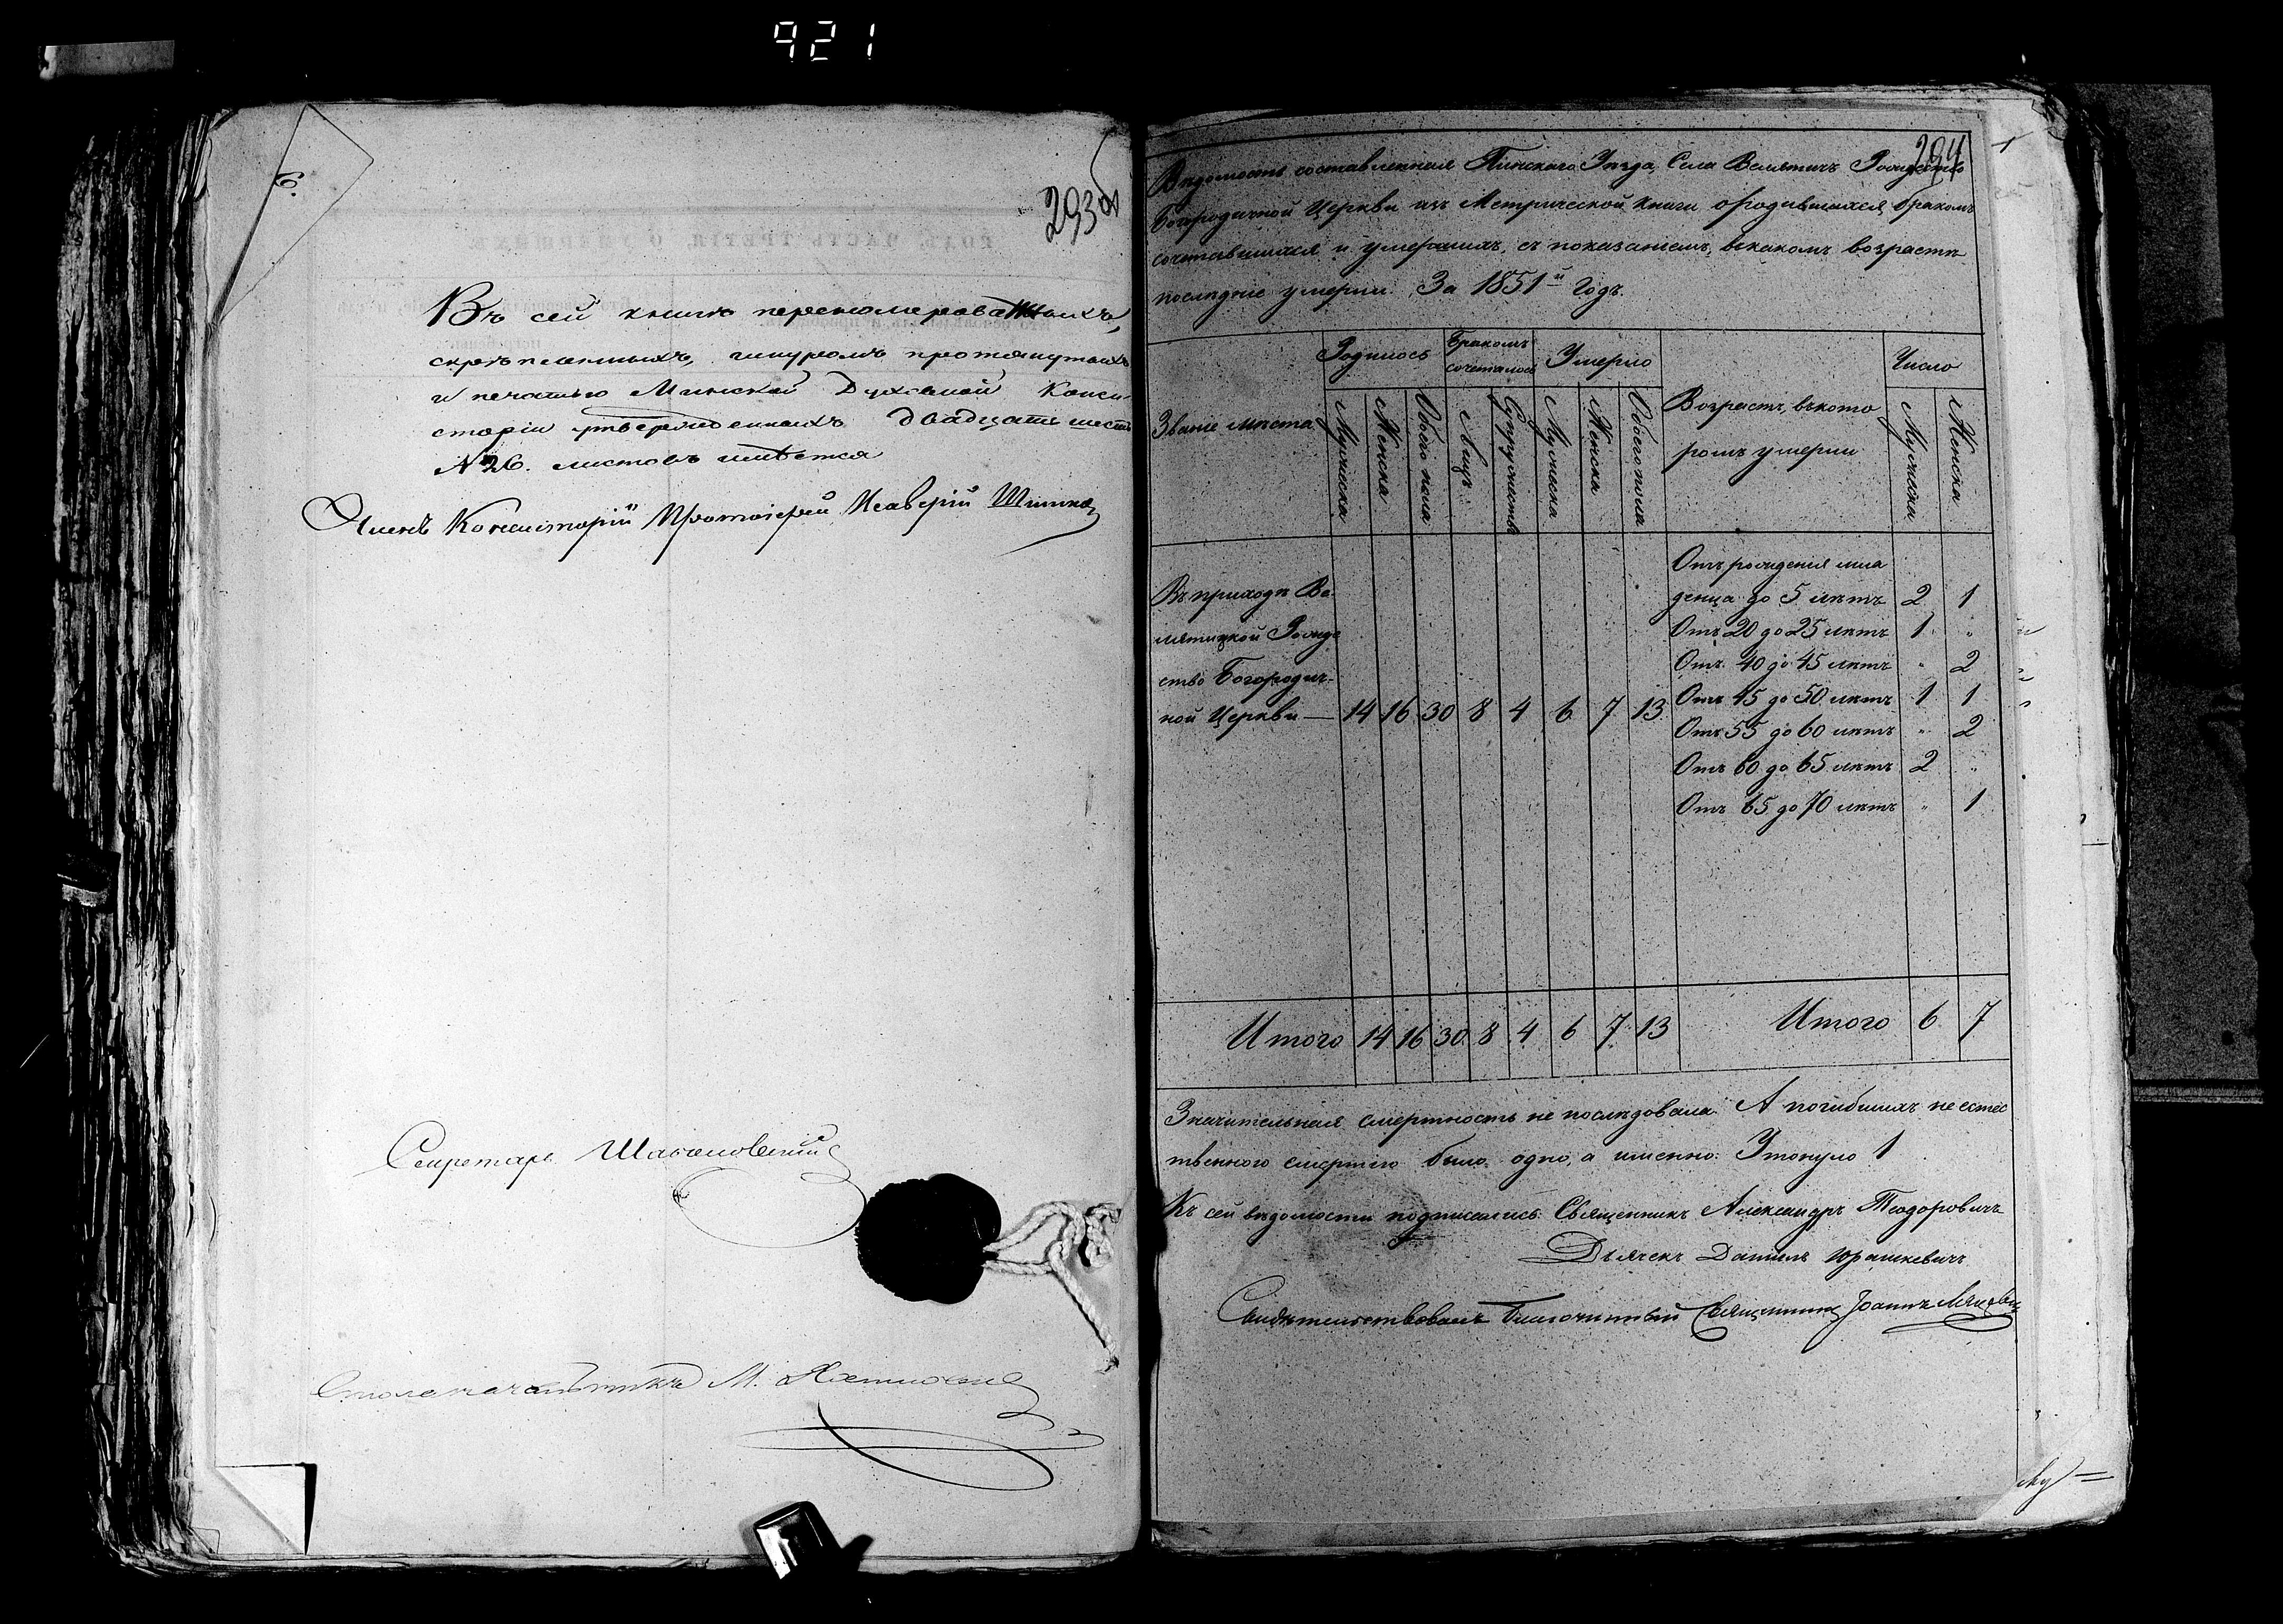 921
293 об
Въ сей книгѣ перенумерованныхъ,
скрѣпленныхъ, шнуромъ протянутыхъ
и печатью Минской Духовной Конси-
сторіи утвержденныхъ двадцать шесть
№ 26. листовъ имѣется
Членъ Консисторіи Протоіерей Ксаверій
Секретарь
Столоначальникъ М.
294
Вѣдомость составленная Пинскаго Уѣзда, Села Велятичъ Рождество
Богородичной Церкви изъ Метрической книги о родившихся, бракомъ
сочетавшихся и умершихъ, съ показаніемъ, въ какомъ возрастѣ
послѣдніе умерли. За 1851й Годъ.
Званіе мѣста
Родилось
Бракомъ сочеталось
Умерло
Возрастъ, въ кото
ромъ умерли
Число
Мужеска
Женска
Обоего пола
Лицъ
Супружествъ
Мужеска
Женска
Обоего пола
Мужеска
Женска
Въ приходѣ Ве-
лятицкой Рожде
ство Богородич-
ной Церкви — 14 16 30 8 4 6 7 13
Отъ рожденія мла
денца до 5 лѣтъ 2 1
Отъ 20 до 25 лѣтъ 1 "
Отъ 40 до 45 лѣтъ " 2
Отъ 45 до 50 лѣтъ 1 1
Отъ 55 до 60 лѣтъ " 2
Отъ 60 до 65 лѣтъ 2 "
Отъ 65 до 70 лѣтъ " 1
Итого 14 16 30 8 4 6 7 13 Итого 6 7
Значительная смертность не послѣдовала. А погибшихъ не естес
твенною смертію было одно, а именно: Утонуло 1
Къ сей вѣдомости подписались: Священникъ Александръ Теодоровичъ
Дьячекъ Даніилъ Юрашкевичъ
Свидѣтельствовалъ Благочинный Священникъ Іоаннъ